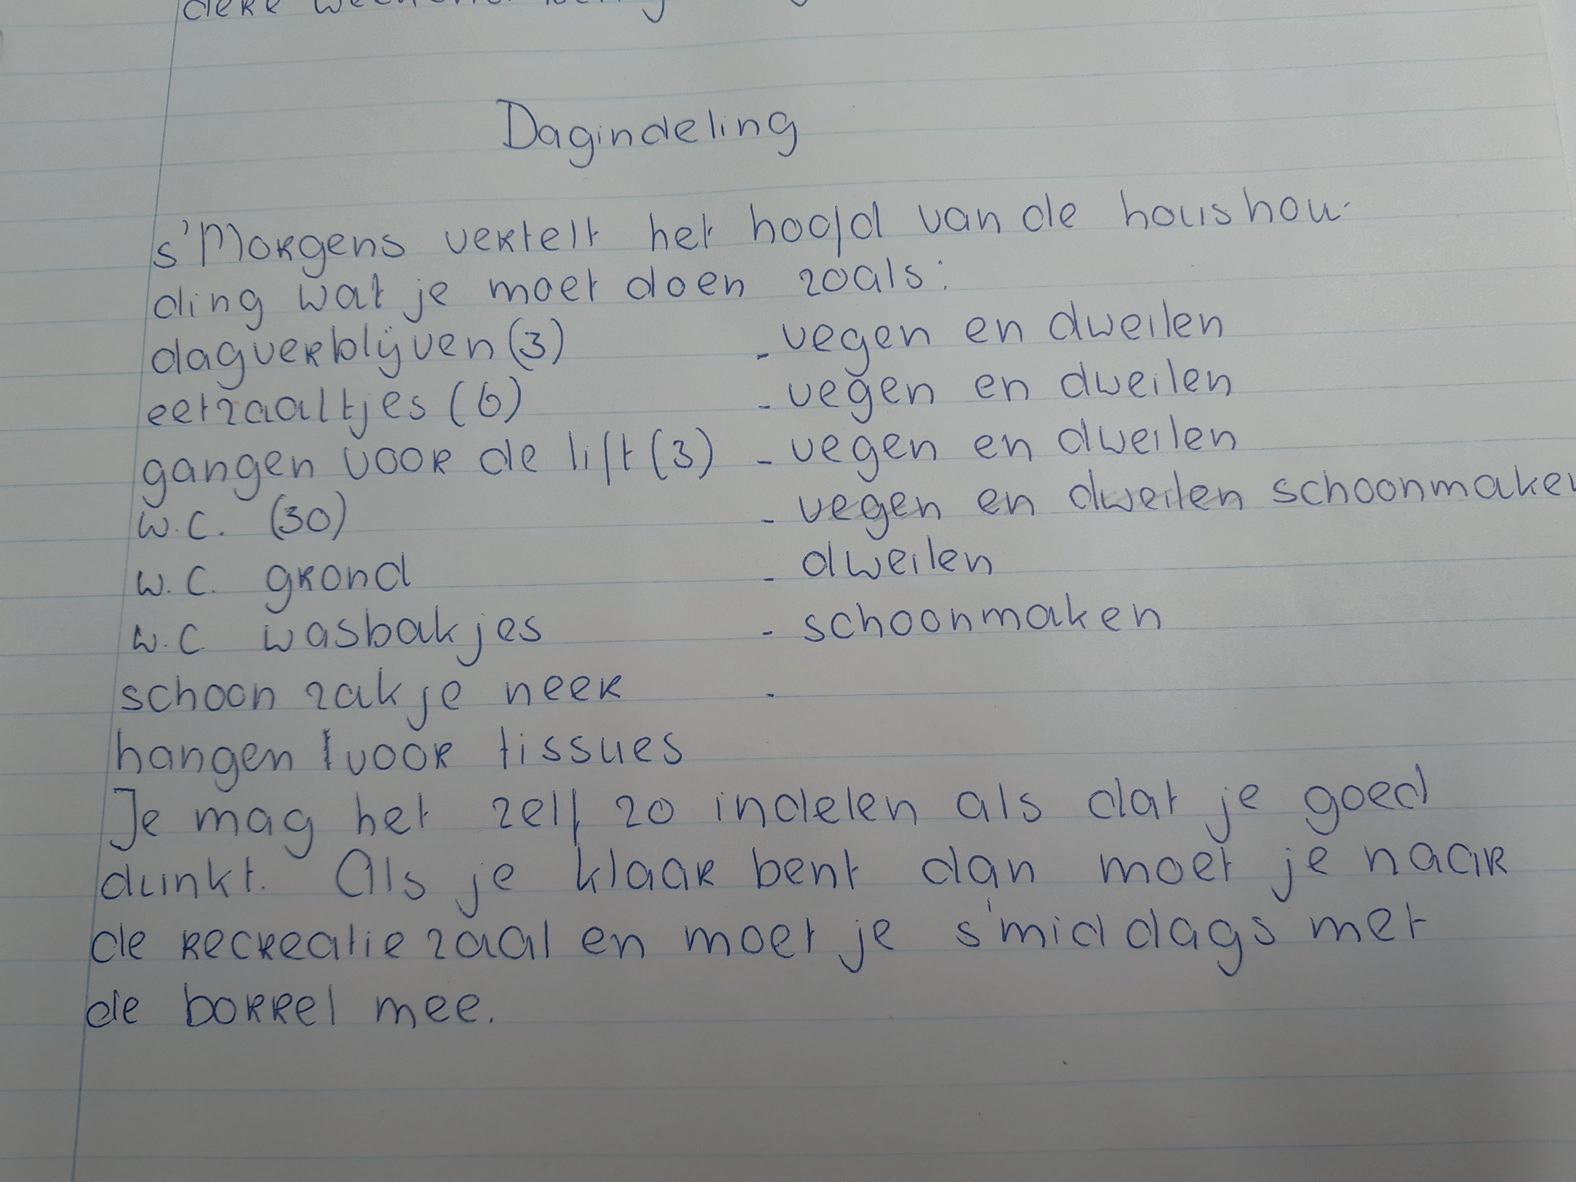 Dagindeling
s'Morgens vertelt het hoofd van de houshou-
ding wat je moet doen zoals:
dagverblijven (3) - vegen en dweilen
eetzaaltjes (6) - vegen en dweilen
gangen voor de lift (3) - vegen en dweilen
w.c. (30) - vegen en dweilen schoonmaken
w.c. grond - dweilen
w.c wasbakjes - schoonmaken
schoon zakje neer -
hangen voor tissues
Je mag het zelf zo indelen als dat je goed
dunkt. Als je klaar bent dan moet je naar
de recreatiezaal en moet je s'middags met
de borrel mee.